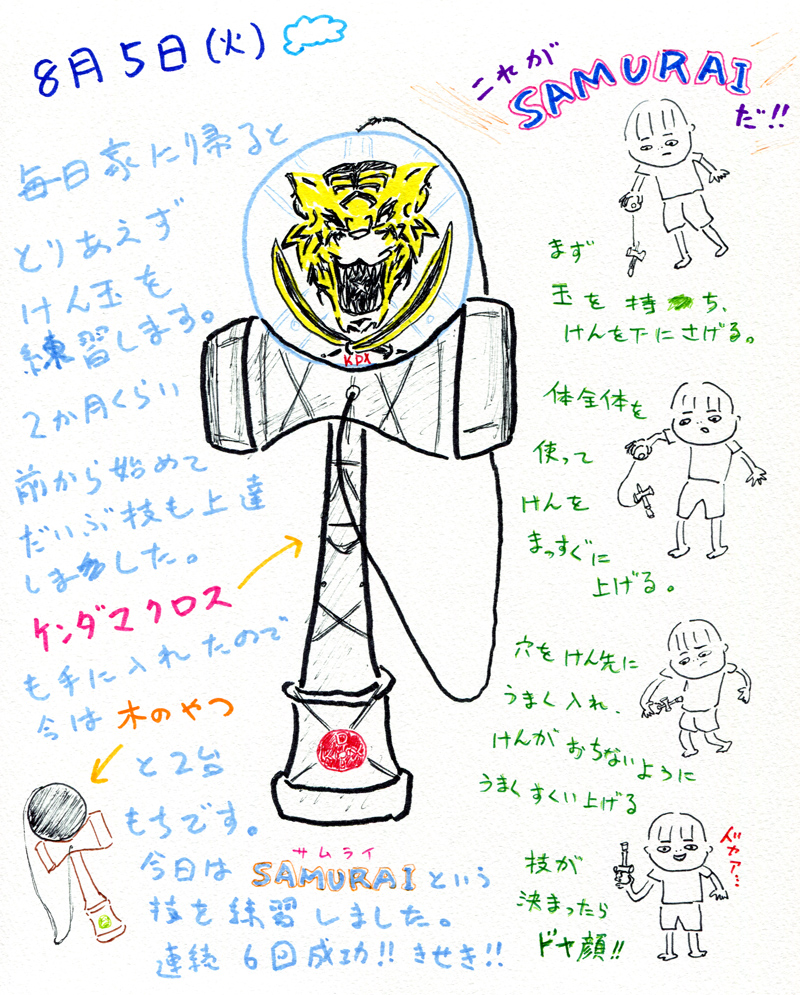 8月5日(火)
毎日家に帰ると
とりあえず
けん玉を
練習します。
2か月くらい
前から始めて
だいぶ技も上達
しました。
ケンダマクロス
も手に入れたので
今は木のやつ
と2台
もちです。
今日はSAMURAIという
サムライ
技を練習しました。
連続6回成功!!きせき!!
KDX
これが
SAMURAI
だ!!
まず
玉を持ち、
けんを下にさげる。
体全体を
使って
けんを
まっすぐに
上げる。
穴をけん先に
うまく入れ、
けんがおちないように
うまくすくい上げる
技が
決まったら
ドヤ顔!!
ドヤァ…